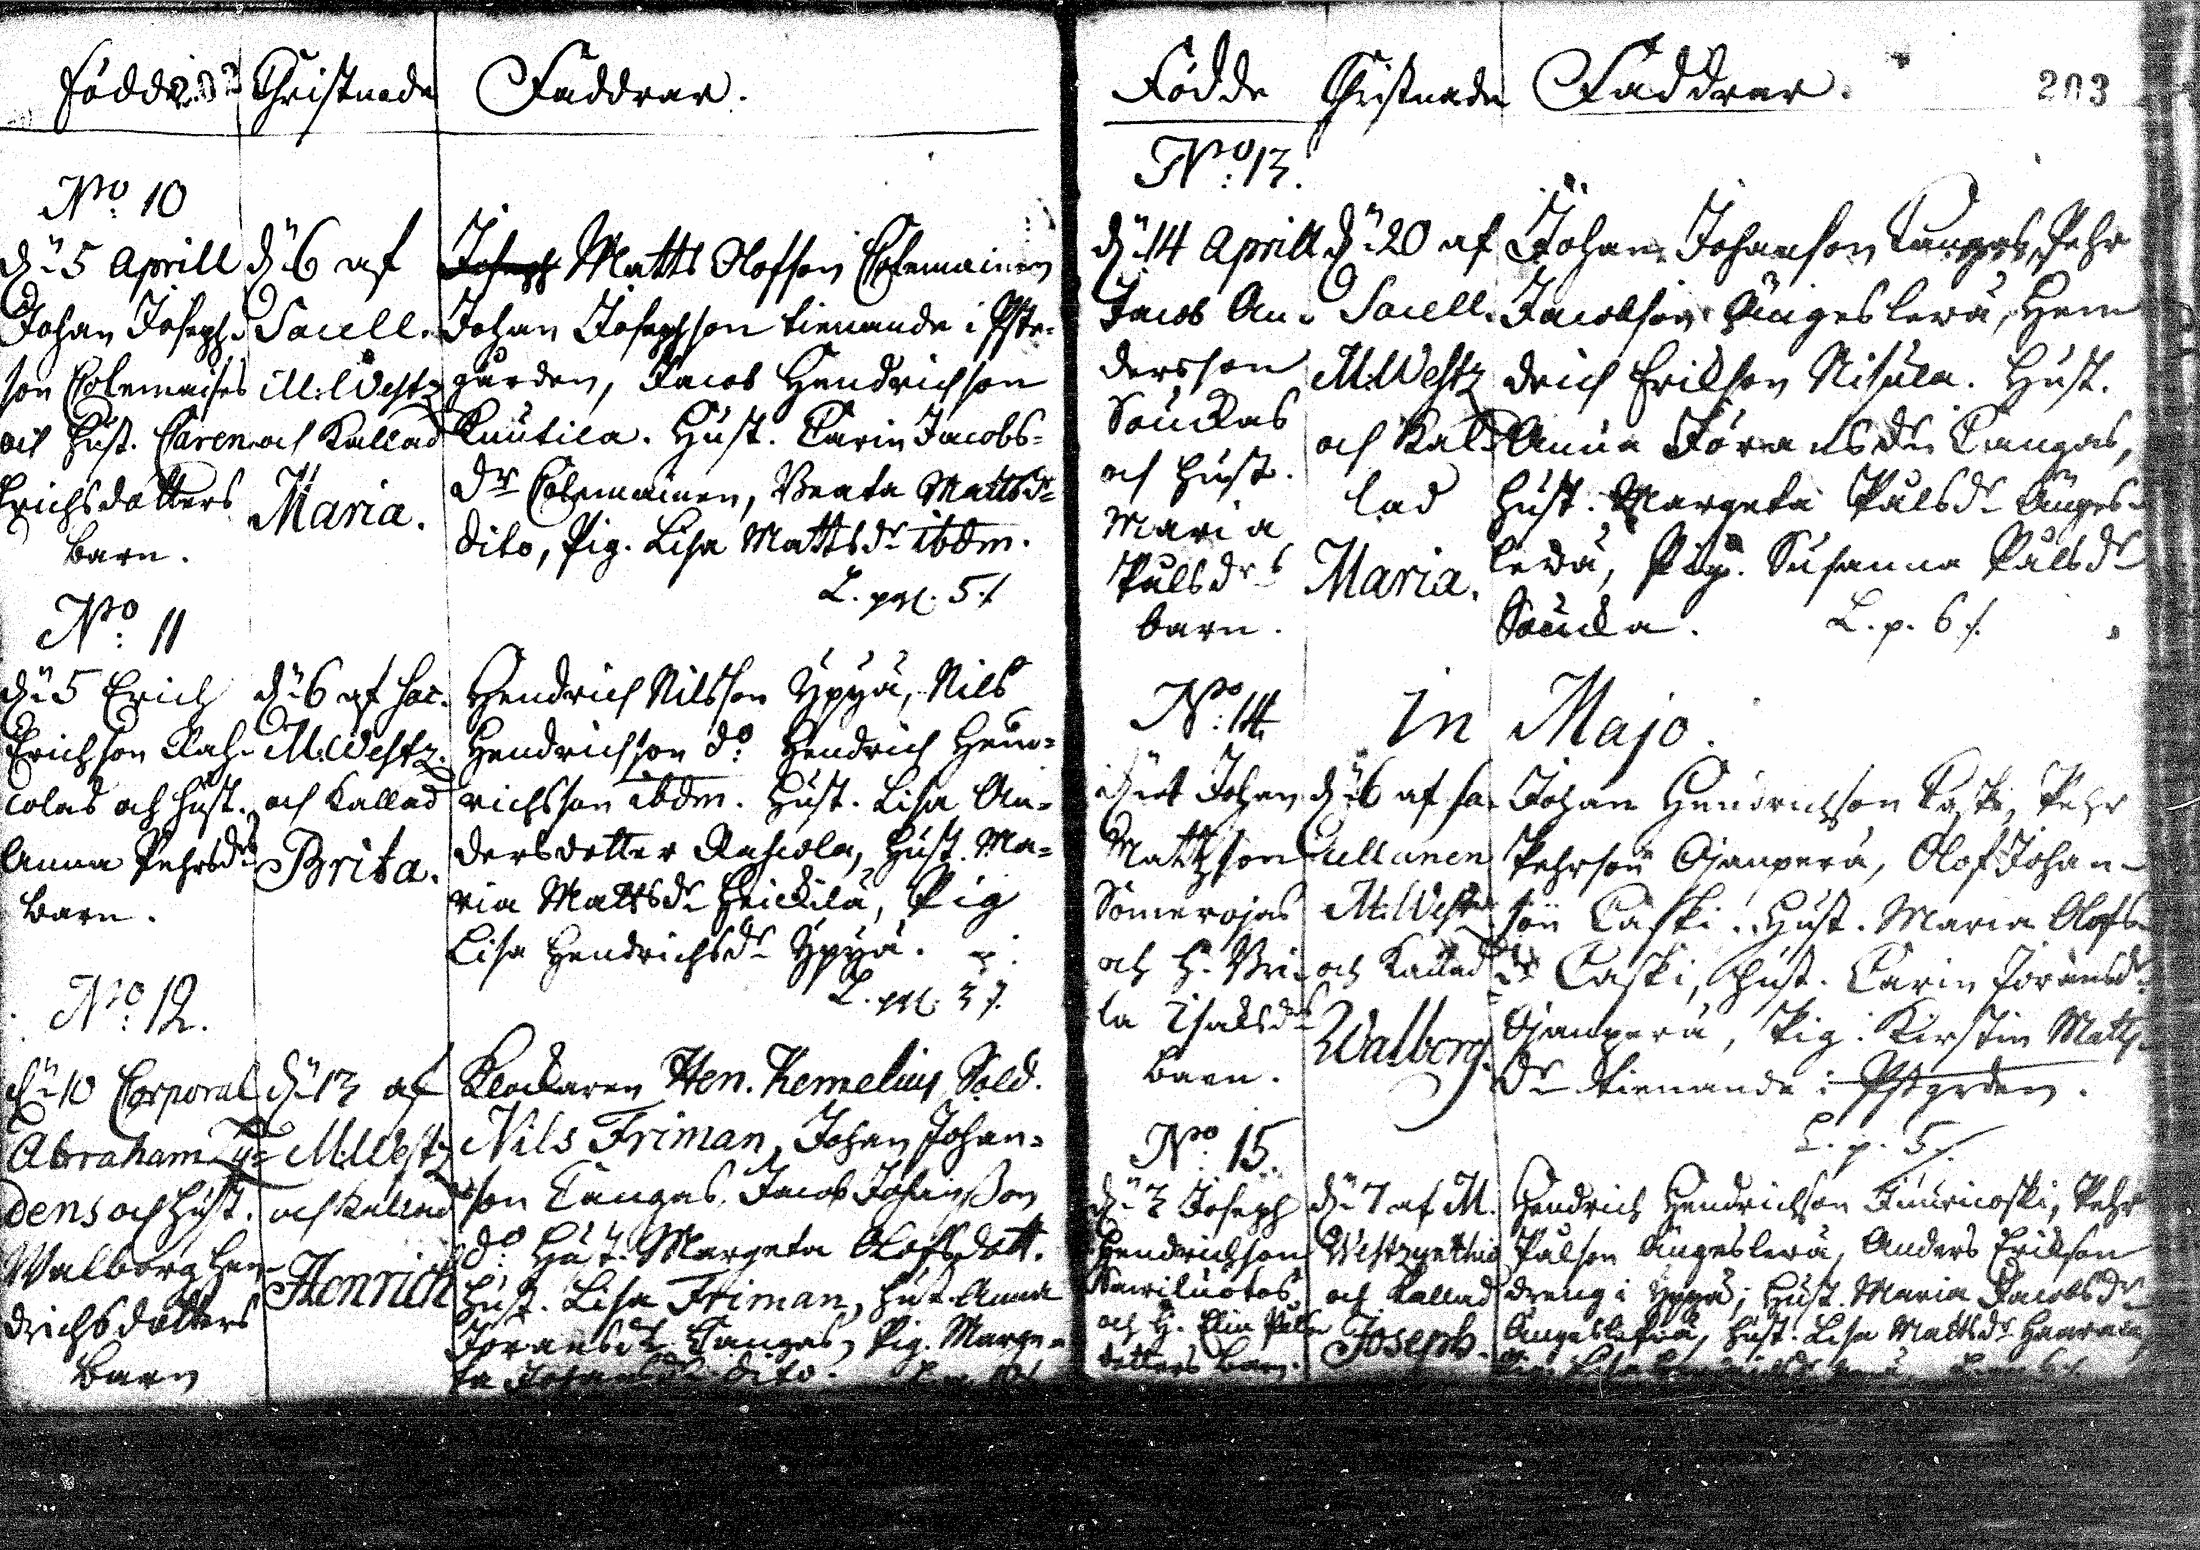 Födde Christnade Faddrar.
No: 10
d: 5 Aprill
Johan Joseph-
son
och Hust. Caren
Erichsdotters
barn.
d: 6 af
Sacell.
M: Westz
och Kallad
Maria.
Joseph Matts Olofson
Johan Josephson tienande i Pste-
gården, Jacob Hendrichson
Knutila. Hust. Carin Jacobs-
dr Beata Mattsdr
dito, Pig. Lisa Mattsdr ibdm.
L. pgl. 5 /.
No: 11
d: 5 Erich
Erichson Rah-
colas och Hust.
Anna Pehrsdrs
barn.
d: 6 af Sac.
M: Westz.
och Kallad
Brita.
Hendrich Nilsson Yppyä, Nils
Hendrichson do Hendrich Hend-
richsson ibdm. Hust. Lisa An-
dersdotter Rahcola, Hust. Ma-
ria Mattsdr Heickilä, Pig
Lisa Hendrichsdr Yppyä.
L. pgl. 3 /.
No: 12.
d: 10 Corporal
Abraham Ty-
dens och Hust.
Walborg Hen-
drichsdotters
barn
d: 13 af
M: Westz
och Kallad
Henrich
Klockaren Hen. Kemelius, Sold.
Nils Friman, Johan Johan-
son Tangas, Jacob Johansson
do: Hust. Margeta Olofsdott.
Hust. Lisa Friman, Hust. Anna
Joransdr Tangas, Pig. Marge-
ta Johansdr dito.
Födde Christnade Faddrar. 203
No: 13.
d: 14 Aprill
Jacob An-
dersson
Souckas
och Hust.
Maria
Pålsdrs
barn.
d: 20 af
Sacell.
M: Westz
och Kal-
lad
Maria.
Johan Johanson Tangas, Pehr
Jacobson Ängeslevä, Hen-
drich Erikson Nisula. Hust.
Anna Jöransdr Tangas,
Hust. Margeta Pålsdr Änges-
levä, Pig. Susanna Pålsdr
Soucka. L. p. 6 /.
in Majo.
No: 14.
Johan
Mattzson
Somerojas
och H. Bri-
ta Isaksdrs
barn.
d: 6 af Sa-
cellanen
M: Westz
och Kallad
Walborg.
Johan Hendrichson Caski, Pehr
Pehrson Ojanperä, Olof Johan-
son Caski. Hust. Maria Olofs-
dr Caski, Hust. Carin Joransdr
Ojanperä, Pig. Kirstin Matts-
dr tienande i Pstgården.
L. p. 5 /.
No: 15.
d: 3 Joseph
Hendrichson
Sauriluotos
och H. Elin Påls-
dotters barn.
d: 7 af M.
Westzynthio
och Kallad
Joseph.
Hendrich Hendrichson Juuricoski, Pehr
Pålson Ängeslevä, Anders Erikson
dreng i Yppyä; Hust. Maria Jacobsdr
Ängeslevä, Hust. Lisa Mattsdr Haarala,